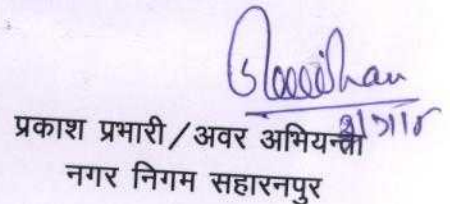 प्रकाश प्रभारी/अवर अभियन्ता
नगर निगम सहारनपुर